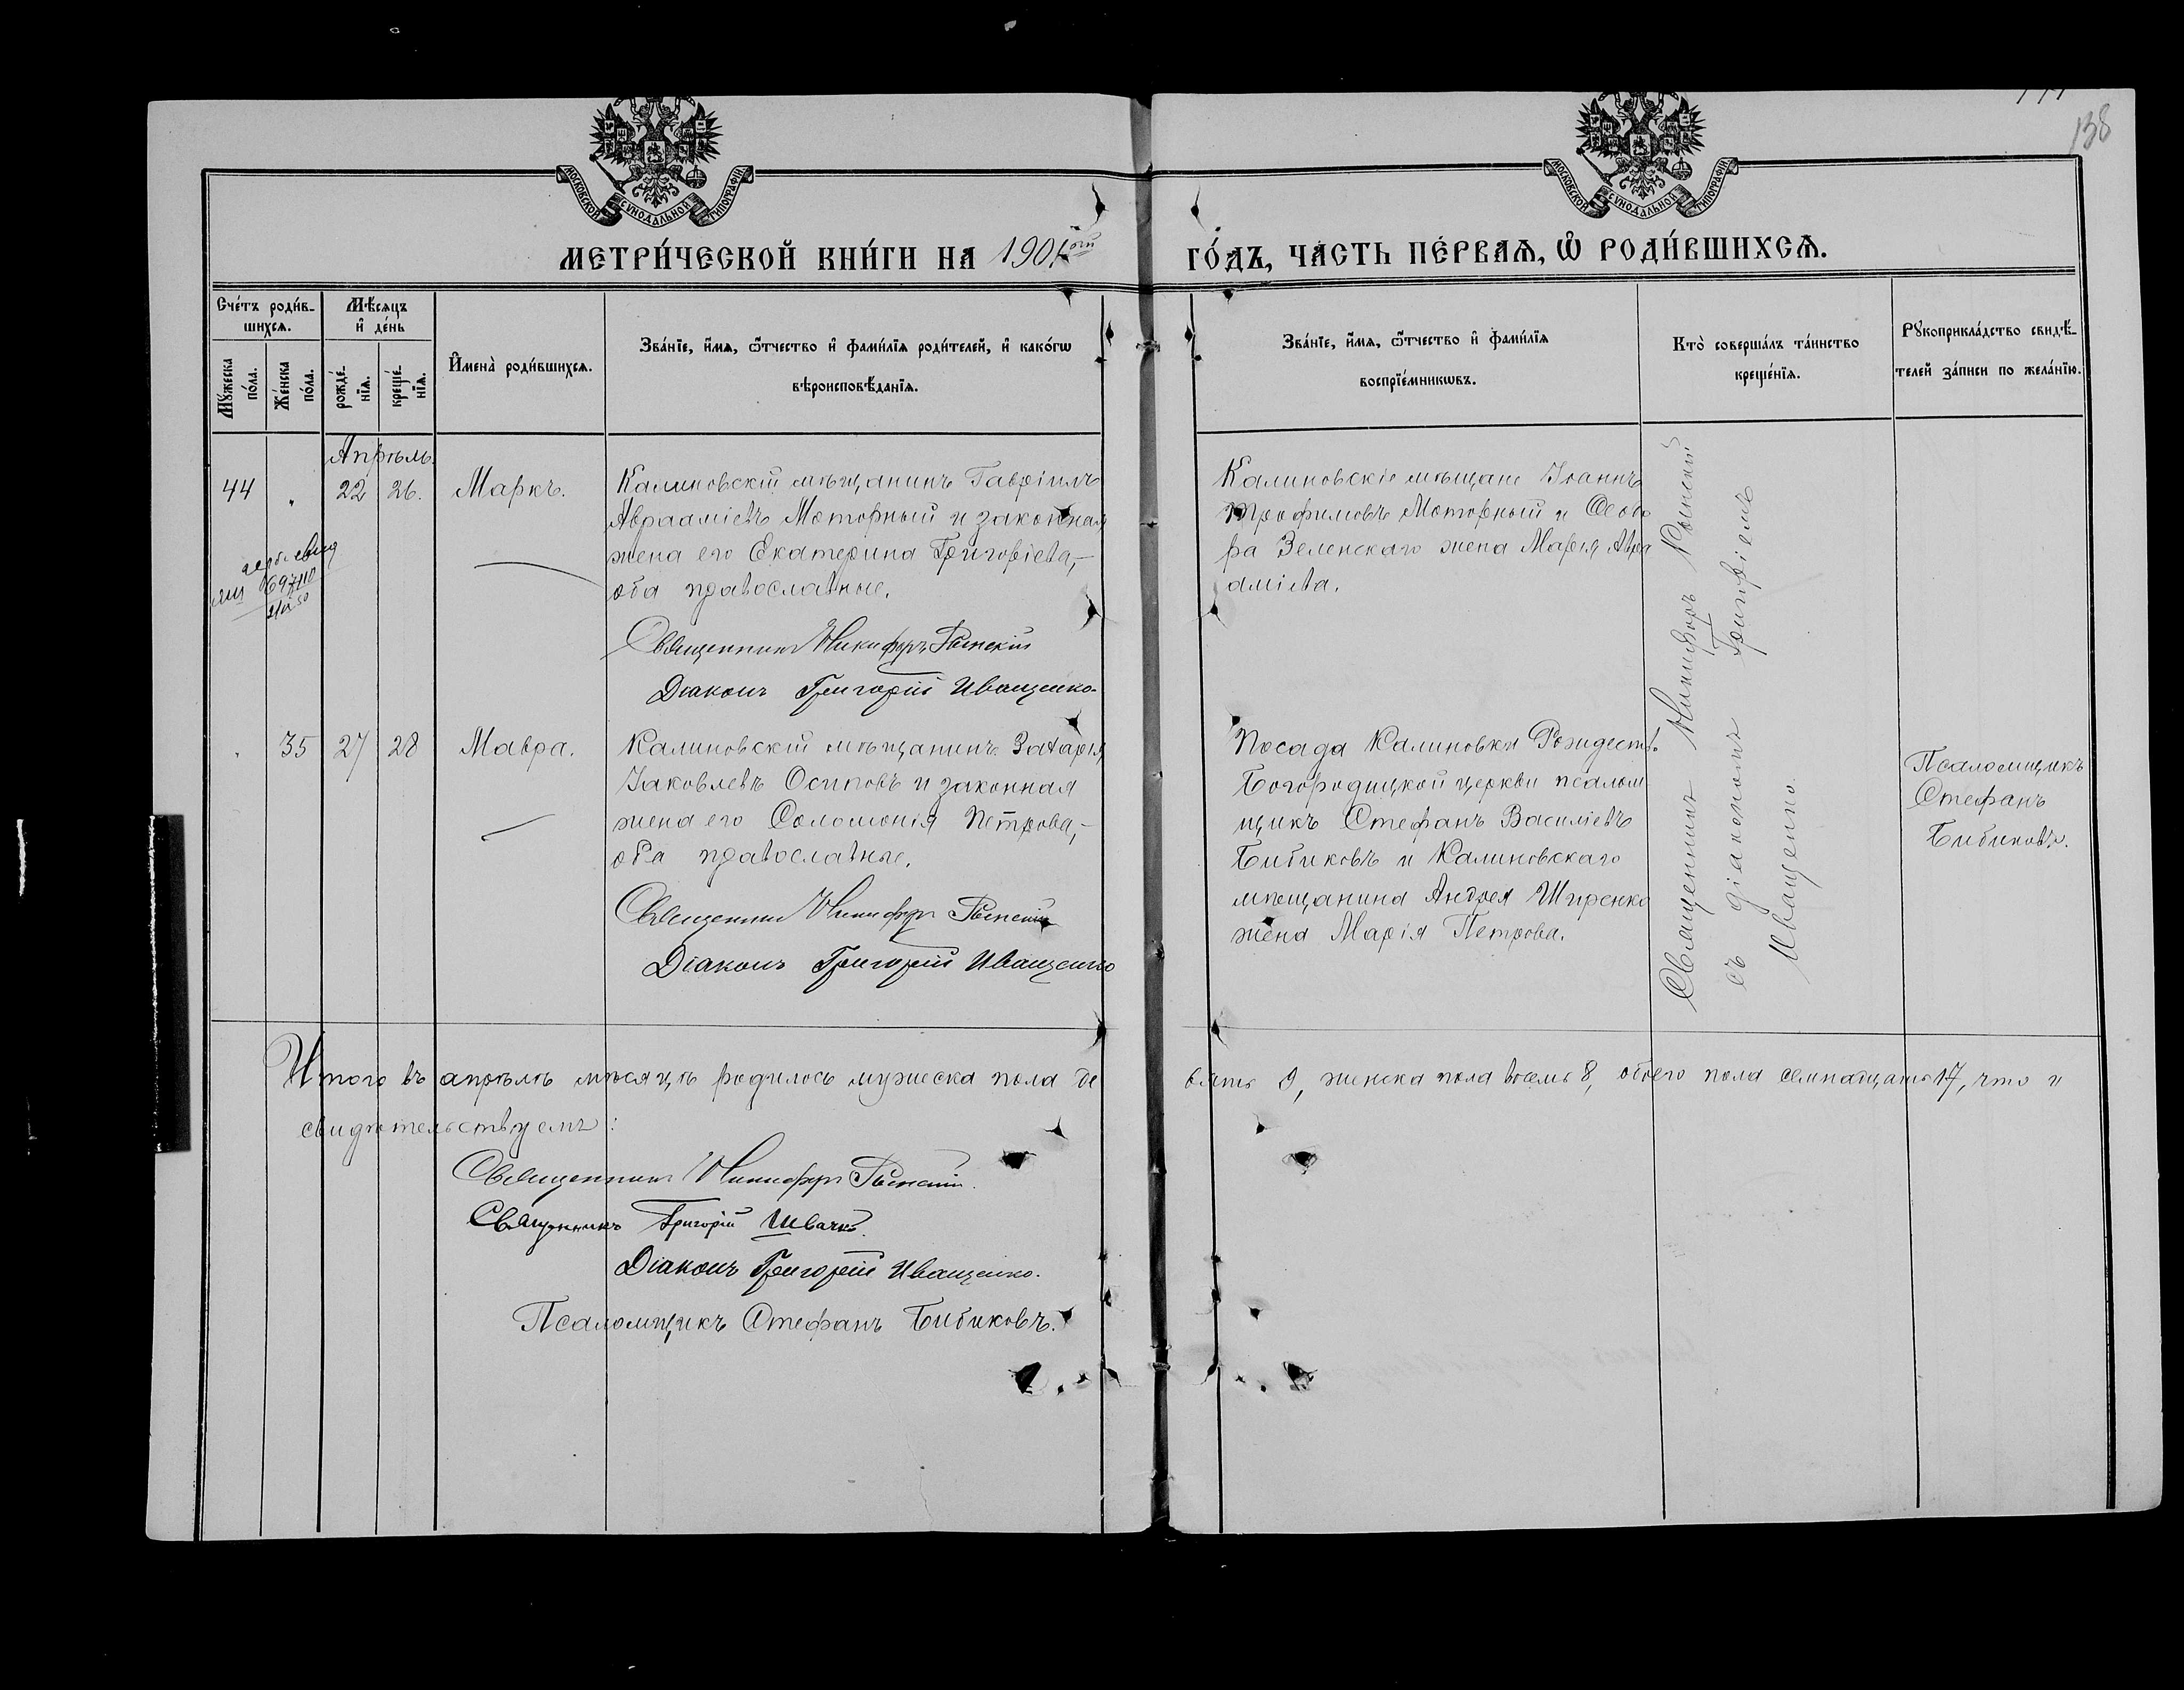 138
МОСКОВСКОЙ СѴНОДАЛЬНОЙ ТИПОГРАФІИ
МОСКОВСКОЙ СѴНОДАЛЬНОЙ ТИПОГРАФІИ
МЕТРИ́ЧЕСКОЙ КНИ́ГИ НА 1901ый ГО́ДЪ, ЧА́СТЬ ПЕ́РВАѦ, Ѡ҆ РОДИ́ВШИХСѦ.
Сче́тъ роди́в-
шихсѧ.
Мꙋ́жеска по́ла.
Же́нска по́ла.
Мѣ́сѧцъ
и҆ де́нь
рожде́-
нїѧ.
креще́-
нїѧ.
И҆мена̀ роди́вшихсѧ.
Зва́нїе, и҆́мѧ, ѻ҆́тчество и҆ фами́лїѧ роди́телей, и҆ како́гѡ
вѣроисповѣ́данїѧ.
Зва́нїе, и҆́мѧ, ѻ҆́тчество и҆ фами́лїѧ
воспрїе́мникѡвъ.
Кто̀ соверша́лъ та́инство
креще́нїѧ.
Рꙋкоприкла́дство свидѣ́-
телей за́писи по жела́нїю.
Апрѣль.
44 " 22 26. Маркъ.
Калиновскій мѣщанинъ Гавріилъ
Аврааміевъ Моторный и законная
жена его Екатерина Григоріева,-
оба православные.
Священникъ Никифоръ
Діаконъ Григорій Иващенко.
Калиновскіе мѣщане Іоаннъ
Трофимовъ Моторный и Ѳеодо
ра Зеленскаго жена Марія Авра
аміева.
" 35 27 28 Мавра.
Калиновскій мѣщанинъ Захарія
Іаковлевъ Осиповъ и законная
жена его Соломонія Петрова,-
оба православные.
Священникъ Никифоръ
Діаконъ Григорій Иващенко
Посада Калиновки Рождеств.
Богородицкой церкви псалом
щикъ Стефанъ Василіевъ
Бибиковъ и Калиновскаго
мѣщанина Андрея Ширенко
жена Марія Петрова.
Священникъ Никифоръ
съ діакономъ Григоріемъ
Иващенко.
Псаломщикъ
Стефанъ
Бибиковъ.
Итого въ апрѣлѣ мѣсяцѣ родилось мужеска пола де вять 9, женска пола восемь 8, обоего пола семнадцать 17, что и
свидѣтельствуемъ:
Священникъ Никифоръ
Священникъ Григорій Швачко.
Діаконъ Григорій Иващенко.
Псаломщикъ Стефанъ Бибиковъ.